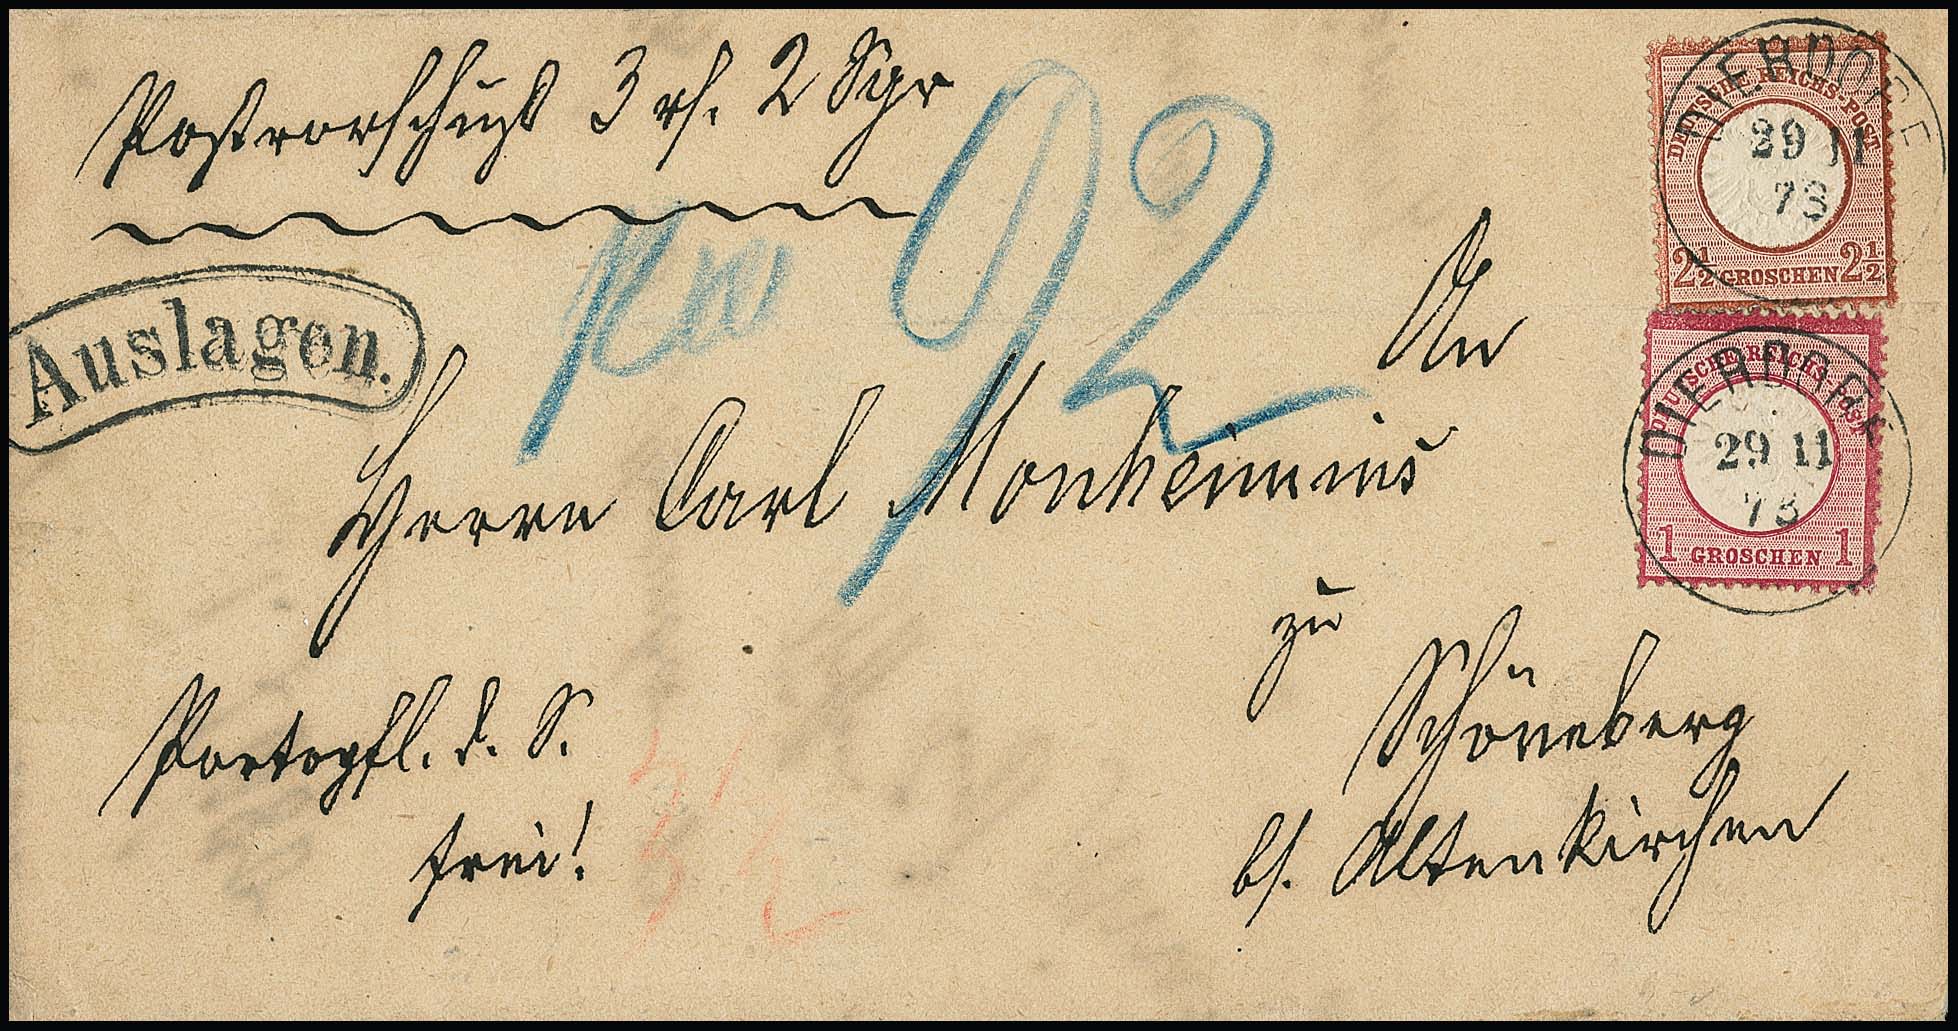 Postvorschuß 3 rf. 2 Sgr
92
Auslagen.
An
Herrn Carl Monheimius
zu
Schöneberg
bf. Altenkirchen
Portopfl. d. S.
frei!
3 1/2
DEUTSCHE REICHS-POST
2½ GROSCHEN 2½
DIERDORF
29 11
73
DEUTSCHE REICHS-POST
1 GROSCHEN 1
DIERDORF
29 11
73